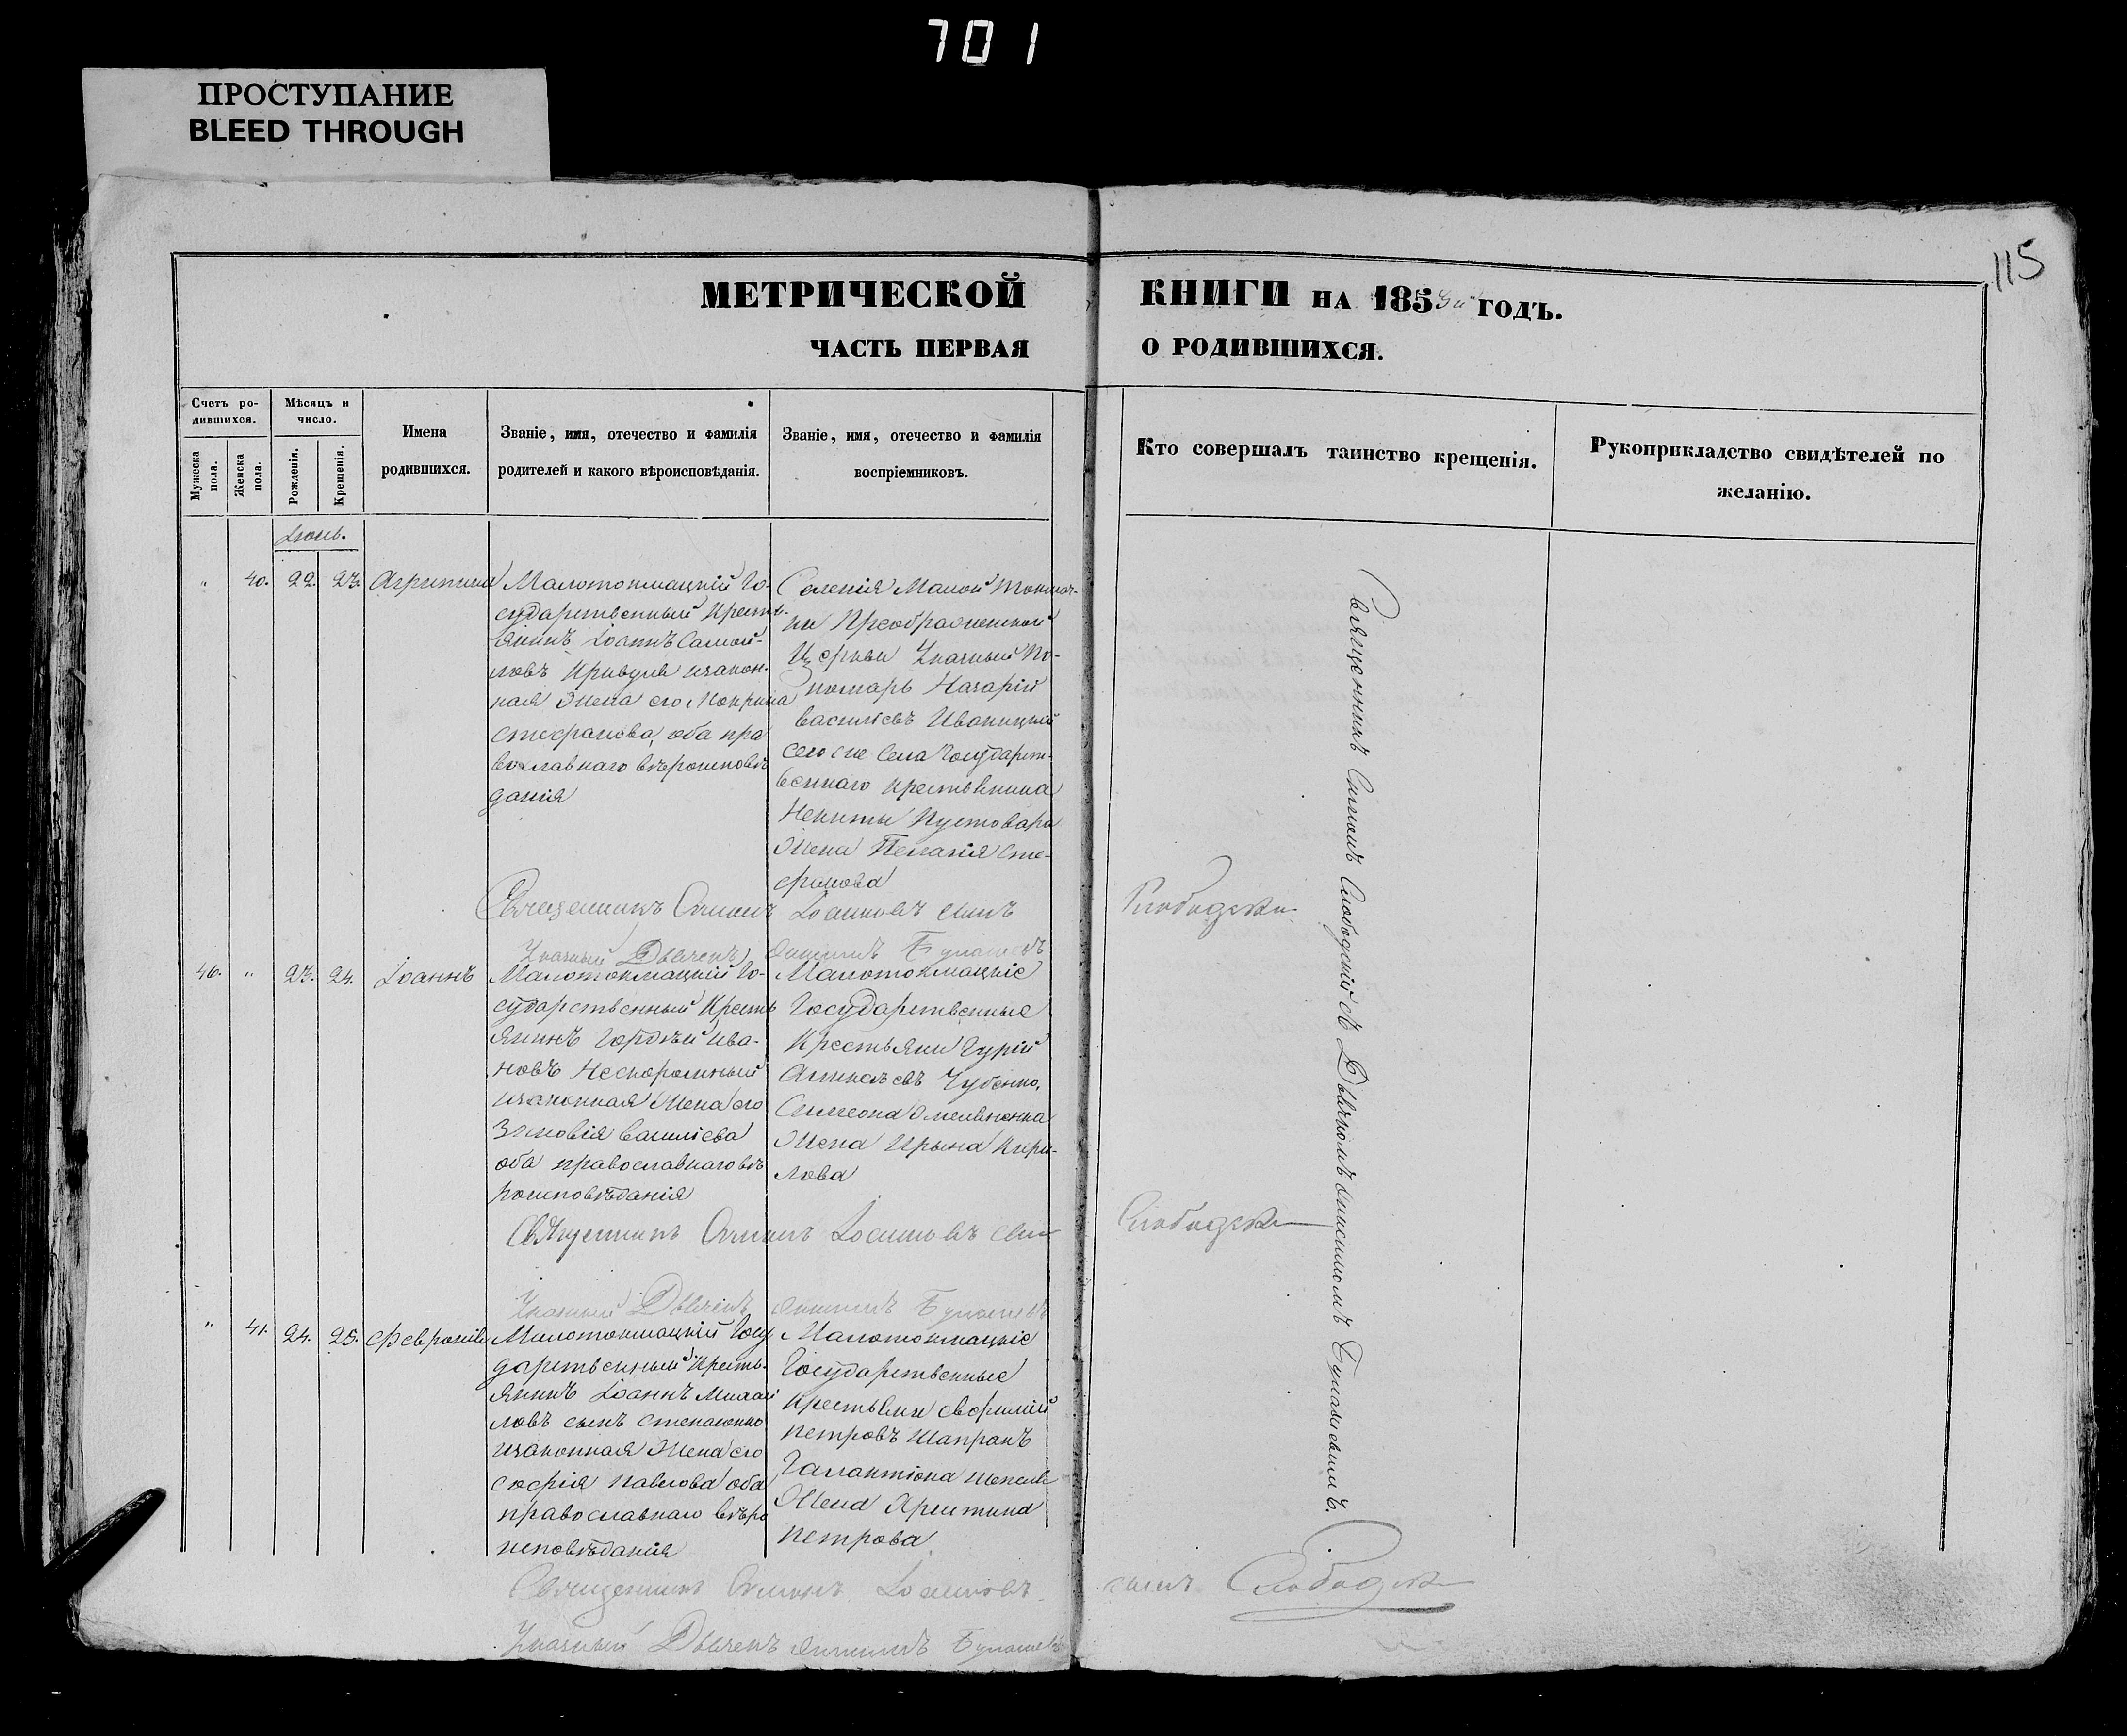 701
ПРОСТУПАНИЕ
BLEED THROUGH
115
МЕТРИЧЕСКОЙ КНИГИ НА 185 ГОДЪ.
ЧАСТЬ ПЕРВАЯ О РОДИВШИХСЯ.
Счетъ ро-
дившихся.
Мужеска
пола.
Женска
пола.
Мѣсяцъ и
число.
Рожденія.
Крещенія.
Имена
родившихся.
Званіе, имя, отечество и фамилія
родителей и какого вѣроисповѣданія.
Званіе, имя, отечество и фамилія
воспріемниковъ.
Кто совершалъ таинство крещенія.
Рукоприкладство свидѣтелей по
желанію.
Іюнь.
" 40. 22. 23. Агрипина
Малотокмацкій Го-
сударственный Кресть-
янинъ Іоаннъ Самой-
ловъ Кривуля изакон-
ная Жена его Мокрина
Стефанова, оба пра
вославнаго вѣроисповѣ
данія
Селенія Малой Токмач-
ки Преображенской
Церкви Указный По-
номарь Назарій
Василіевъ Иваницкій
сего же Села Государст-
веннаго крестьянина
Некиты Пустовара
Жена Пелагія Сте-
фанова
Священникъ Симонъ Іоанновъ сынъ Слободски
Указный Дьячекъ
46. " 23. 24. Іоаннъ
Малотокмацкій Го-
сударственный Кресть
янинъ Гордѣй Ива-
новъ Нескоромный
изаконная Жена его
Зиновія Василіева
оба православнаго вѣ
роисповѣданія
Малотокмацкіе
Государственные
Крестьяни Гурій
Чубенко,
Симеона Омельяненка
Жена Ирына Кири-
лова
Священникъ Симонъ Іоанновъ сын Слободски
Указный Дьячекъ
" 41. 24. 25. Февронія
Малотокмацкій Госу
дарственный Кресть-
янинъ Іоаннъ Михай
ловъ сынъ Степаненко
изаконная Жена его
Софія Павлова оба
православнаго вѣро
исповѣданія
Малотокмацкіе
Государственные
Крестьяни Евфимій
Петровъ Шапранъ
Галактіона
Жена Христина
Петрова
Священникъ Симонъ Іоанновъ сынъ Слободски
Указный Дьячекъ
Священникъ Симонъ Слободскій съ Дьячкомъ